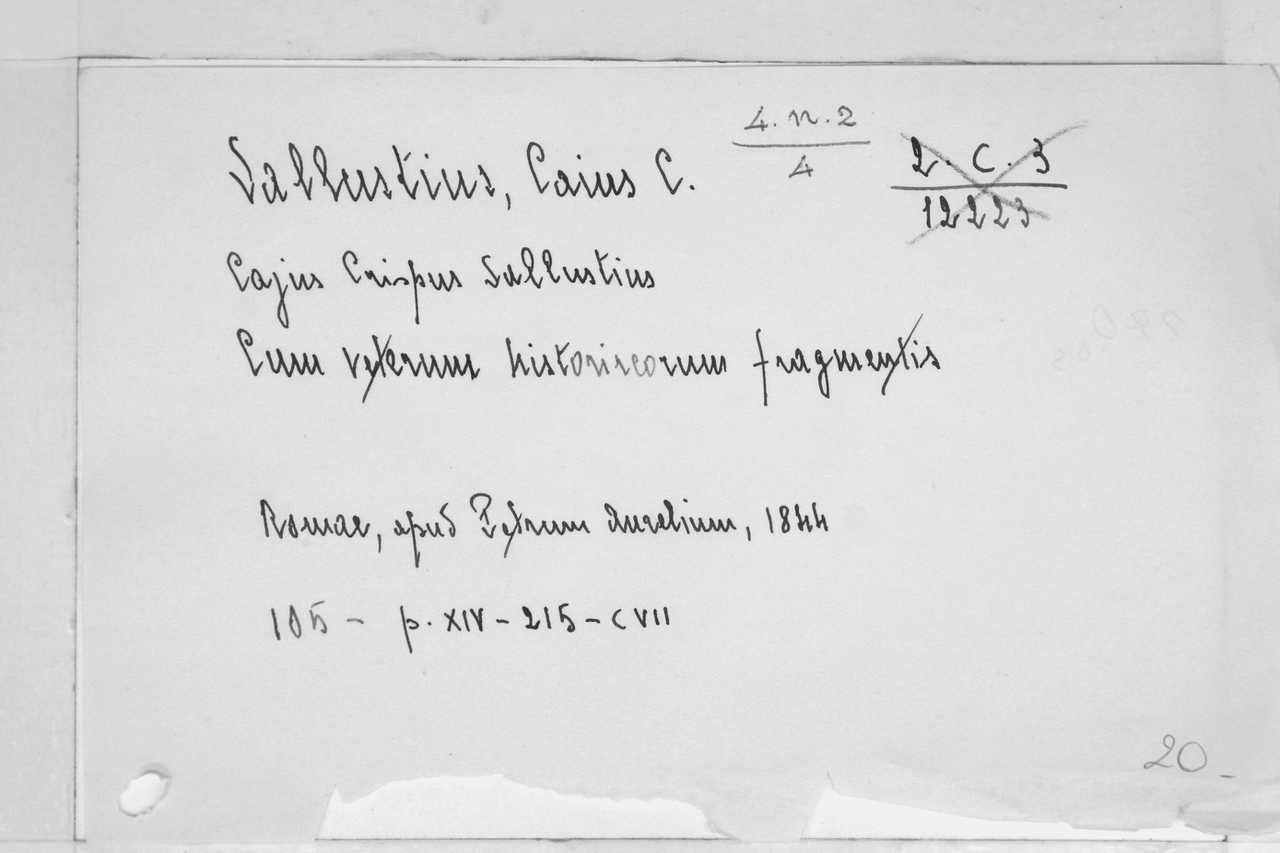 4. n. 2
4
2. C. 3
12223
Sallustius, Caius C.
Cajus Crispus Sallustius
Cum veterum historicorum fragmentis
Romae, apud Petrum Aurelium, 1844
105 - p. XIV - 215 - CVII
20-